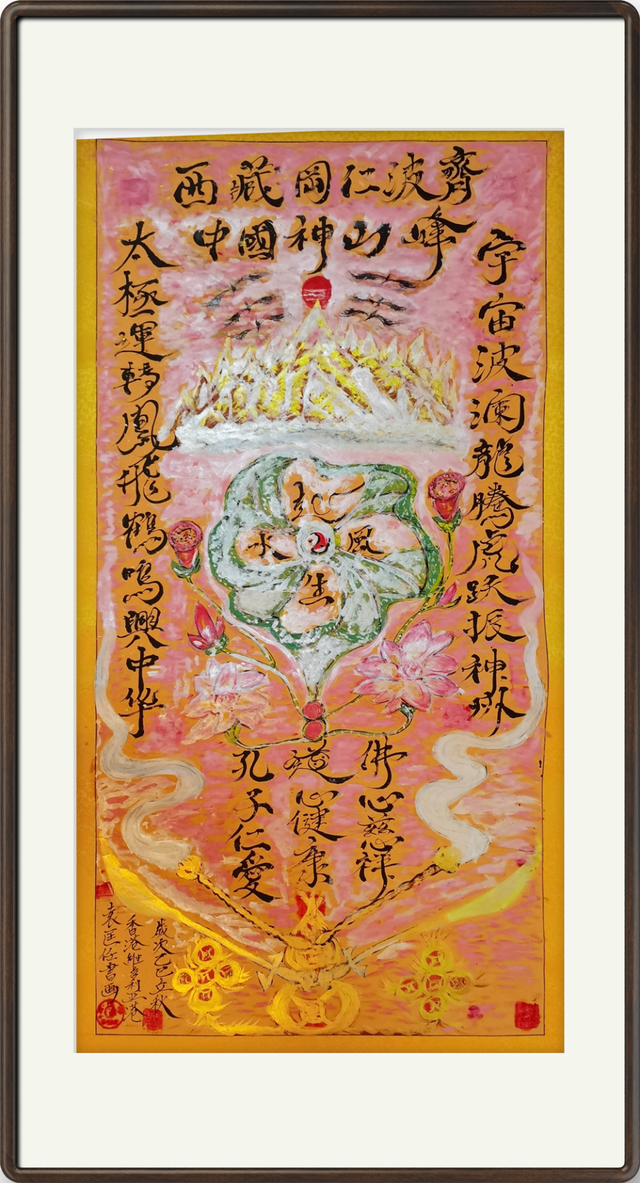 西藏岡仁波齊
中國神山峰
宇宙波澜龍騰虎跃振神州
太極運轉鳳飛鶴鳴興中华
風生水起
佛心慈祥
道心健康
孔子仁愛
歲次乙巳立秋
香港維多利亞港
袁匡任書画